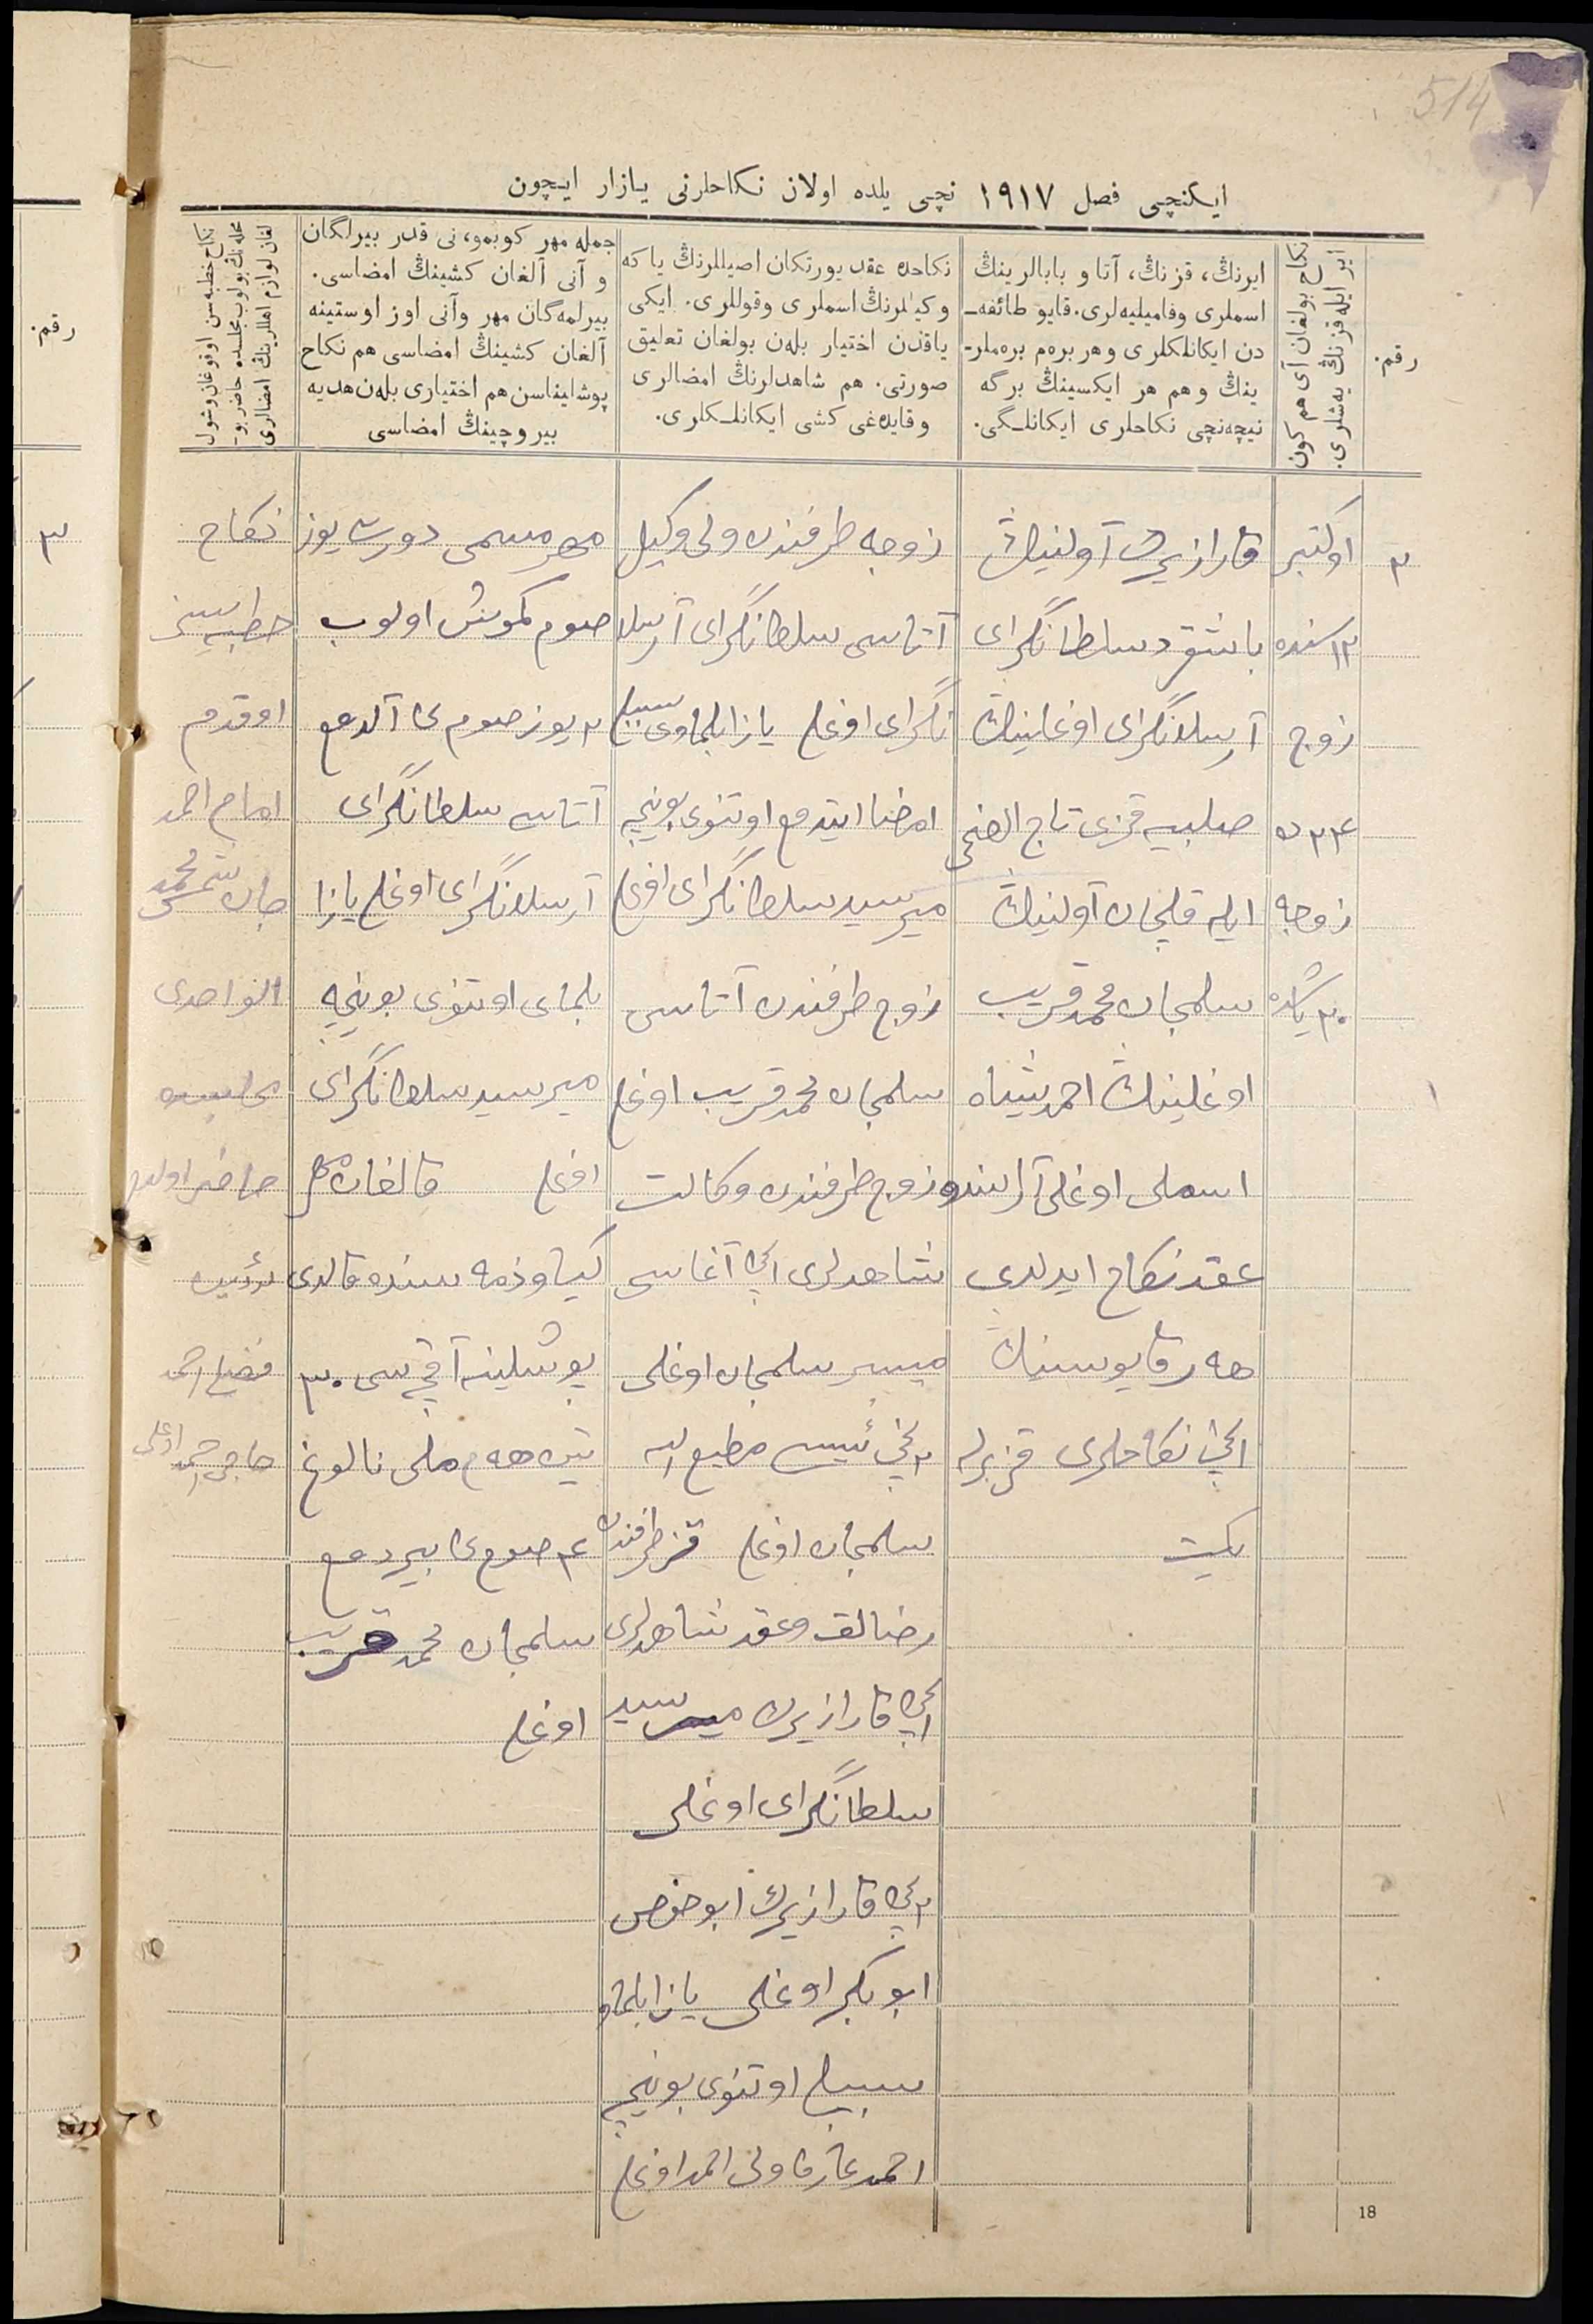 514
ایکنچی فصل ١٩١٧ نچی یلده اولان نکاحلرنی یازار ایچون
رقم.
نکاح بولغان آی هم کون
ایر ایله قزنڭ یه‌شلری.
ایرنڭ، قزنڭ، آتا و بابالرینڭ
اسملری وفامیلیه‌لری. قایو طائفه‌ـ
دن ایکانلکلری و هر بره‌م بره‌ملر-
ینڭ و هم هر ایکسینڭ برگه
نیچه‌نچی نکاحلری ایکانلـگی.
نکاحده عقد یورتکان اصیللرنڭ یا که
وکیللرنڭ اسملری وقوللری. ایکی
یاقدن اختیار بله‌ن بولغان تعلیق
صورتی. هم شاهدلرنڭ امضالری
وقایده‌غی کشی ایکانلـکلری.
جمله مهر کوبمو، نی قدر بیرلگان
و آنی آلغان کشینڭ امضاسی.
بیرلمه‌گان مهر وآنی اوز اوستینه
آلغان کشینڭ امضاسی هم نکاح
پوشلیناسن هم اختیاری بله‌ن هدیه
بیروچینڭ امضاسی
نکاح خطبه‌سن اوقوغان وشول
محله‌نڭ بولوب مجلسده حاضر بو-
لغان لوازم اهللرینڭ امضالری
٣
اوکتبر
١٢ سنده
زوج
٢٣ ده
زوجه
٢٠ یاشده
قارازیرك آولنینڭ
باشقرد سلطانگرای
آرسلانگرای اوغلینڭ
صلبیه قزی تاج الضحی
ایله قلیجان آولنینڭ
سلمجان محمدقریب
اوغلینڭ احمدشاه
اسملی اوغلی آراسنده
عقد نکاح ایدلدی
هه‌ر قایوسینڭ
انچی نکاحلری قز برله
یکیت
زوجه طرفندن ولی وکیل
آتاسی سلطانگرای آرسلا
نگرای اوغلی یازا بلماوی سببلی
امضا ایتدم اوتنوی بوینچه
میرسید سلطانگرای اوغلی
زوج طرفندن آتاسی
سلمجان محمدقریب اوغلی
زوج طرفندن وکالت
شاهدلری انچی آغاسی
میسر سلمجان اوغلی
٢نچی مطیع الله
سلمجان اوغلی قز طرفندن
رضالق وعقد شاهدلری
انچی قارازیرك میرسید
سلطانگرای اوغلی
٢نچی قارازیرك ابوحفص
ابوبکر اوغلی یازا بلماو
سببلی اوتنوی بوینچه
احمد اوغلی
مهر مسمی دورت یوز
صوم کموش اولوب
٢ یوز صوم نی آلدم
آتاسی سلطانگرای
آرسلانگرای اوغلی یازا
بلمای اوتنوی بوینچه
میرسید سلطانگرای
اوغلی قالغان مهر
کیاو ذمه سنده قالدی
پوشلینه آقچه‌سی ٣٠
تین هه‌م ملی نالوغ
٤ صوم نی بیردم
سلمجان محمدقریب
اوغلی
نکاح
خطبه‌سن
اوقدم
امام احمد
جان شرمحمد
الواحدی
مجلسده
حاضر اولدم
مؤذن
احمد
حاجی احمد اوغلی
رقم.
٣
18